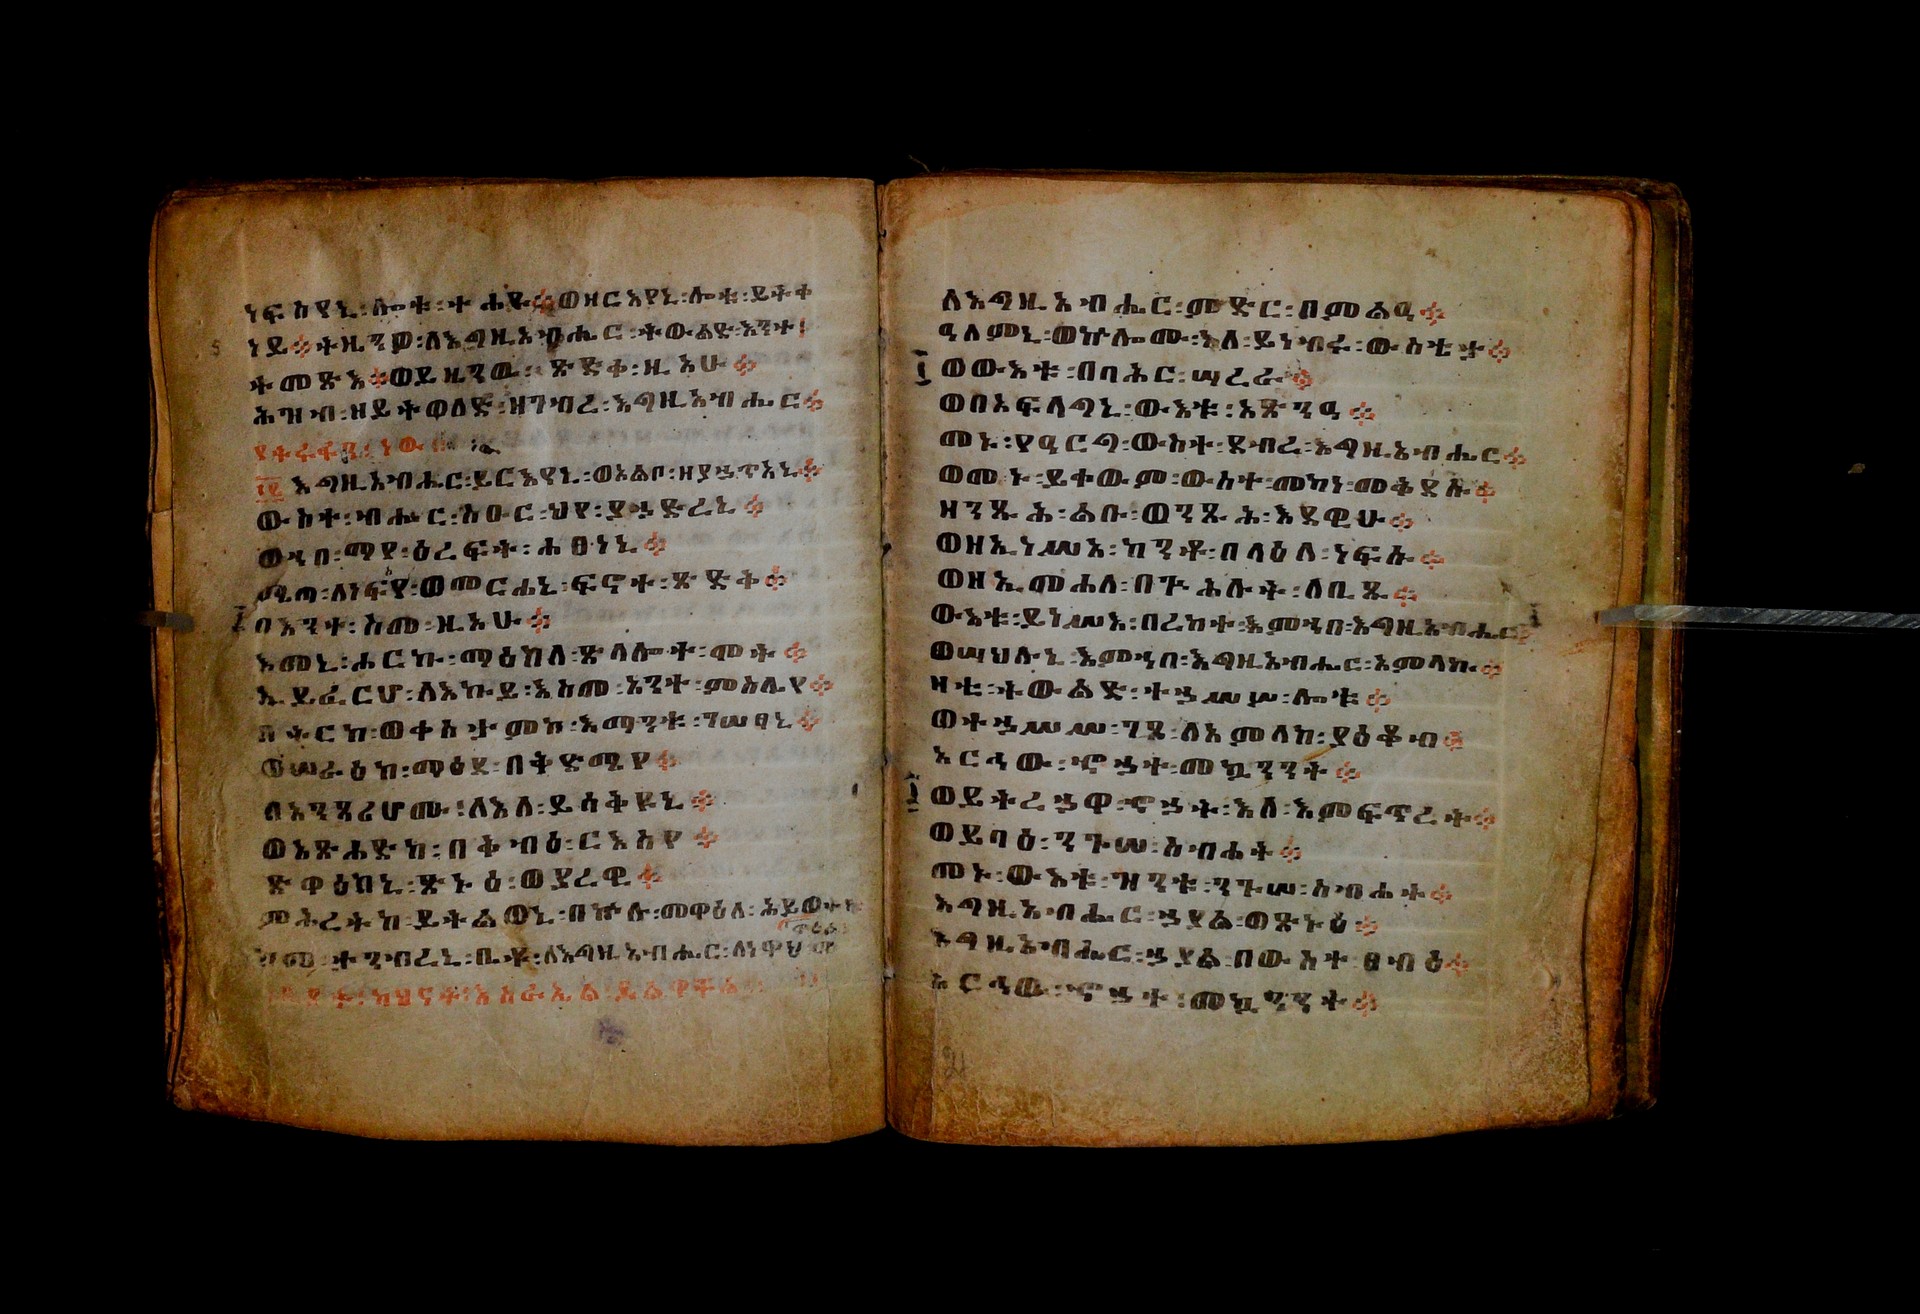 ነፍስየኒ፡ሎቱ፡ተሐዩ። ወዘርእየኒ፡ሎቱ፡ይትቀ
ነይ። ትዜንዎ፡ለእግዚአብሔር፡ትውልድ፡እንተ፡
ትመጽእ። ወይዜንዉ፡ጽድቆ፡ዚአሁ።
ሕዝብ፡ዘይትወለድ፡ዘገብረ፡እግዚአብሔር።
እግዚአብሔር፡ይርእየኒ፡ወአልቦ፡ዘያኀጥአኒ።
ውስተ፡ብሔር፡ህየ፡ያኀድረኒ።
ወኀበ፡ማየ፡ዕረፍት፡ሐፀነኒ።
ሜጣ፡ለነፍስየ፡ወመርሐኒ፡ፍኖተ፡ጽድቅ።
በእንተ፡ስመ፡ዚአሁ።
እመኒ፡ሖርኩ፡ማዕከለ፡ጽላሎተ፡ሞት።
ኢይፈርሆ፡ለእኩይ፡እስመ፡አንተ፡ምስሌየ።
በትርከ፡ወቀስታምከ፡እማንቱ፡ገሠፃኒ።
ወሠራዕከ፡ማዕደ፡በቅድሜየ።
በአንጻሪሆሙ፡ለእለ፡ይሳቅዩኒ።
ወአጽሐድከ፡በቅብዕ፡ርእስየ።
ጽዋዕከኒ፡ጽኑዕ፡ወያረዊ።
ምሕረትከ፡ይትልወኒ፡በኵሉ፡መዋዕለ፡ሕይወትየ
ከመ፡ታንብረኒ፡ቤቶ፡ለእግዚአብሔር፡ለነዋህ፡መ
ለእግዚአብሔር፡ምድር፡በምልዓ።
ዓለምኒ፡ወኵሎሙ፡እለ፡ይነብሩ፡ውስቴታ።
ወውእቱ፡በባሕር፡ሣረራ።
ወበአፍላግኒ፡ውእቱ፡አጽንዓ።
መኑ፡የዓርግ፡ውስተ፡ደብረ፡እግዚአብሔር።
ወመኑ፡ይቀውም፡ውስተ፡መካነ፡መቅደሱ።
ዘንጹሕ፡ልቡ፡ወንጹሕ፡እደዊሁ።
ወዘኢነሥአ፡ከንቶ፡በላዕለ፡ነፍሱ።
ወዘኢመሐለ፡በጕሕሉት፡ለቢጹ።
ውእቱ፡ይነሥእ፡በረከተ፡እምኀበ፡እግዚአብሔር።
ወሣህሉኒ፡እምኀበ፡እግዚአብሔር፡አምላኩ።
ዛቲ፡ትውልድ፡ተኀሥሦ፡ሎቱ።
ወተኀሥሥ፡ገጾ፡ለአምላከ፡ያዕቆብ።
አርኅው፡ኆኃተ፡መኳንንት።
ወይትረኃዋ፡ኆኃት፡እለ፡እምፍጥረት።
ወይባዕ፡ንጉሠ፡ስብሐት።
መኑ፡ውእቱ፡ዝንቱ፡ንጉሠ፡ስብሐት።
እግዚአብሔር፡ኃያል፡ወጽኑዕ።
እግዚአብሔር፡ኃያል፡በውስተ፡ፀብዕ።
አርኅው፡ኆኃተ፡መኳንንት።